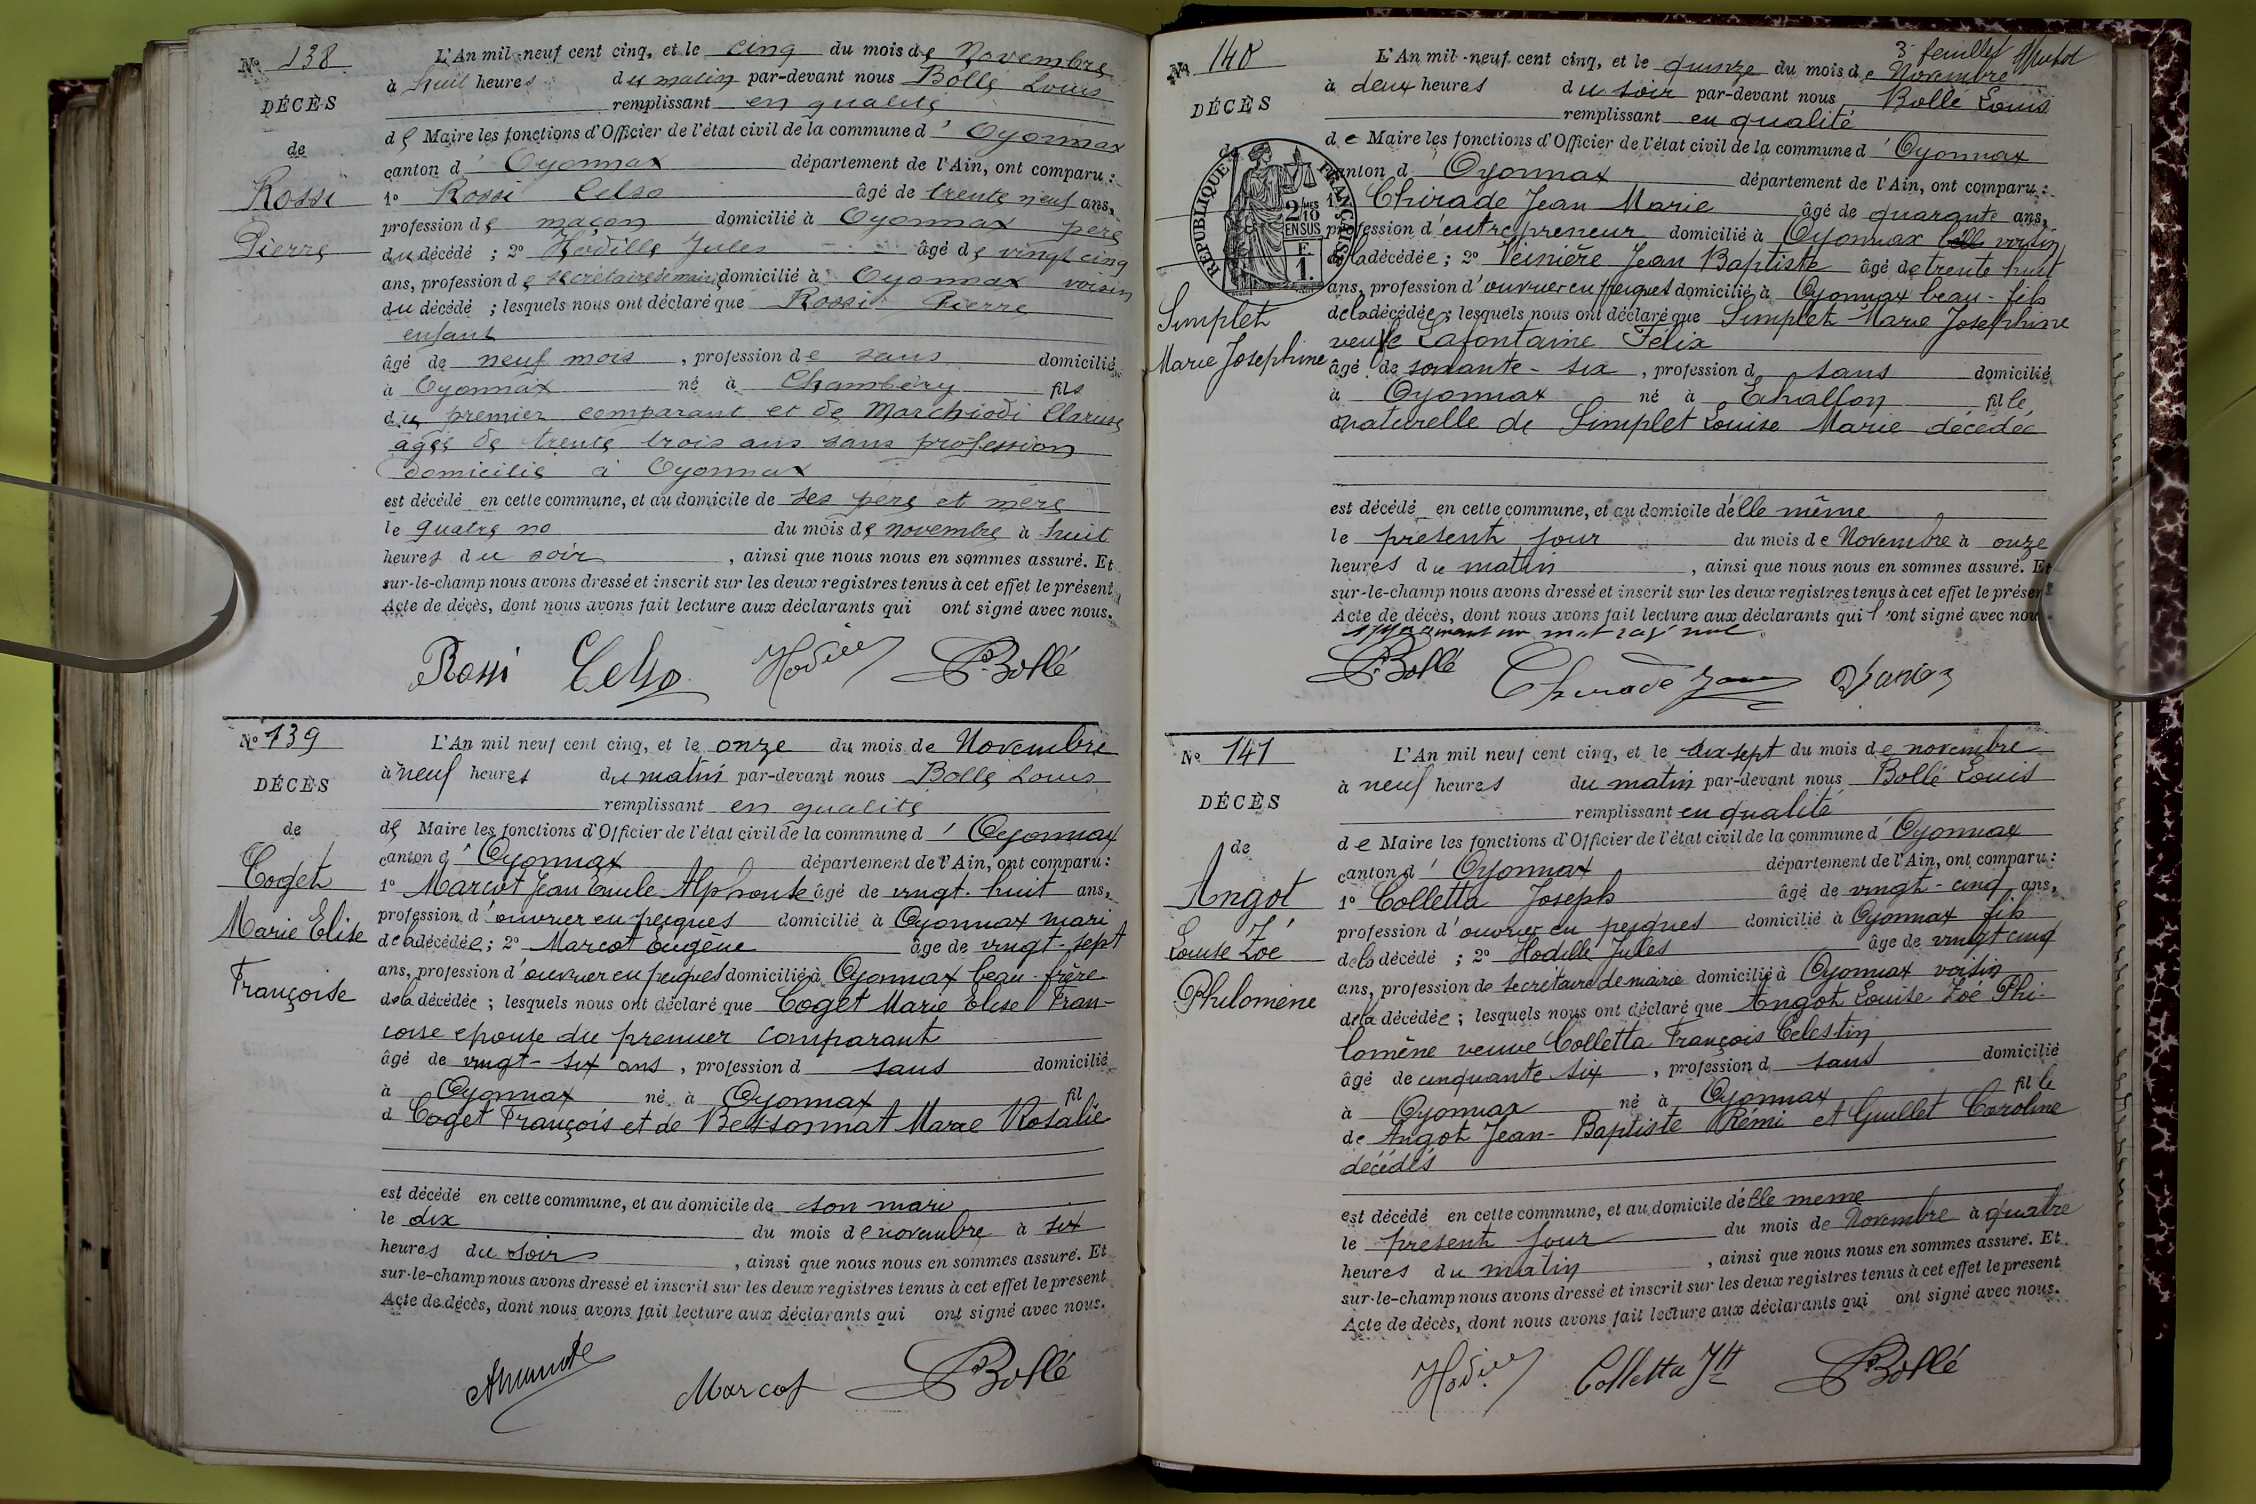 No 138
DÉCÈS
de
Rossi
Pierre
L'An mil neuf cent cinq, et le cinq du mois de Novembre
à huit heures du matin par-devant nous Bollé Louis
remplissant en qualité
de Maire les fonctions d'Officier de l'état civil de la commune d' Oyonnax
canton d' Oyonnax département de l'Ain, ont comparu :
1º Rossi Celso âgé de trente neuf ans,
profession de maçon domicilié à Oyonnax père
du décédé ; 2º Hodille Jules âgé de vingt cinq
ans, profession de secrétaire de mairie domicilié à Oyonnax voisin
du décédé ; lesquels nous ont déclaré que Rossi Pierre
enfant
âgé de neuf mois , profession de sans domicilié
à Oyonnax né à Chambéry fils
du premier comparant et de Marchiodi
âgée de trente trois ans sans profession
domicilié à Oyonnax
est décédé en cette commune, et au domicile de ses père et mère
le quatre no du mois de novembre à huit
heures du soir , ainsi que nous nous en sommes assuré. Et
sur-le-champ nous avons dressé et inscrit sur les deux registres tenus à cet effet le présent
Acte de décès, dont nous avons fait lecture aux déclarants qui ont signé avec nous.
Rossi Celso Hodille L. Bollé
No 139
DÉCÈS
de
Coget
Marie Elise
Françoise
L'An mil neuf cent cinq, et le onze du mois de Novembre
à neuf heures du matin par-devant nous Bollé Louis
remplissant en qualité
de Maire les fonctions d'Officier de l'état civil de la commune d' Oyonnax
canton d' Oyonnax département de l'Ain, ont comparu :
1º Marcot Jean Emile Alphonse âgé de vingt-huit ans,
profession d'ouvrier en peignes domicilié à Oyonnax mari
de la décédée ; 2º Marcot Eugène âgé de vingt-sept
ans, profession d'ouvrier en peignes domicilié à Oyonnax beau-frère
de la décédée ; lesquels nous ont déclaré que Coget Marie Elise Fran-
coise epouse du premier comparant
âgé de vingt-six ans , profession d sans domicilié
à Oyonnax né à Oyonnax fil
d Coget François et de Bessonnat Marie Rosalie
est décédé en cette commune, et au domicile de son mari
le dix du mois de novembre à six
heures du soir , ainsi que nous nous en sommes assuré. Et
sur-le-champ nous avons dressé et inscrit sur les deux registres tenus à cet effet le présent
Acte de décès, dont nous avons fait lecture aux déclarants qui ont signé avec nous.
Marcot L. Bollé
3e feuillet
No 140
DÉCÈS
de
RÉPUBLIQUE FRANÇAISE
2/10 EN SUS
F. 1.
Simplet
Marie Josephine
L'An mil neuf cent cinq, et le quinze du mois de Novembre
à deux heures du soir par-devant nous Bollé Louis
remplissant en qualité
de Maire les fonctions d'Officier de l'état civil de la commune d' Oyonnax
canton d' Oyonnax département de l'Ain, ont comparu :
1º Chirade Jean Marie âgé de quarante ans,
profession d'entrepreneur domicilié à Oyonnax voisin
de la décédée ; 2º Veinière Jean Baptiste âgé de trente huit
ans, profession d'ouvrier en peignes domicilié à Oyonnax beau-fils
de la décédée ; lesquels nous ont déclaré que Simplet Marie Josephine
veuve Lafontaine Felix
âgé de soixante-six , profession d sans domicilié
à Oyonnax né à Echallon fille
naturelle de Simplet Louise Marie décédée
est décédé en cette commune, et au domicile d'elle même
le present jour du mois de Novembre à onze
heures du matin , ainsi que nous nous en sommes assuré. Et
sur-le-champ nous avons dressé et inscrit sur les deux registres tenus à cet effet le présent
Acte de décès, dont nous avons fait lecture aux déclarants qui l'ont signé avec nous
mot rayé nul
L. Bollé Chirade Jean
No 141
DÉCÈS
de
Angot
Louise Zoé
Philomène
L'An mil neuf cent cinq, et le dix sept du mois de novembre
à neuf heures du matin par-devant nous Bollé Louis
remplissant en qualité
de Maire les fonctions d'Officier de l'état civil de la commune d' Oyonnax
canton d' Oyonnax département de l'Ain, ont comparu :
1º Colletta Joseph âgé de vingt-cinq ans,
profession d'ouvrier en peignes domicilié à Oyonnax fils
de la décédé ; 2º Hodille Jules âgé de vingt cinq
ans, profession de secrétaire de mairie domicilié à Oyonnax voisin
de la décédée ; lesquels nous ont déclaré que Angot Louise Zoé Phi-
lomène veuve Colletta François Celestin
âgé de cinquante six , profession d sans domicilié
à Oyonnax né à Oyonnax fille
de Angot Jean-Baptiste Rémi et Guillet Caroline
décédés
est décédé en cette commune, et au domicile d'elle meme
le present jour du mois de Novembre à quatre
heures du matin , ainsi que nous nous en sommes assuré. Et
sur-le-champ nous avons dressé et inscrit sur les deux registres tenus à cet effet le présent
Acte de décès, dont nous avons fait lecture aux déclarants qui ont signé avec nous.
Hodille Colletta Jh L. Bollé